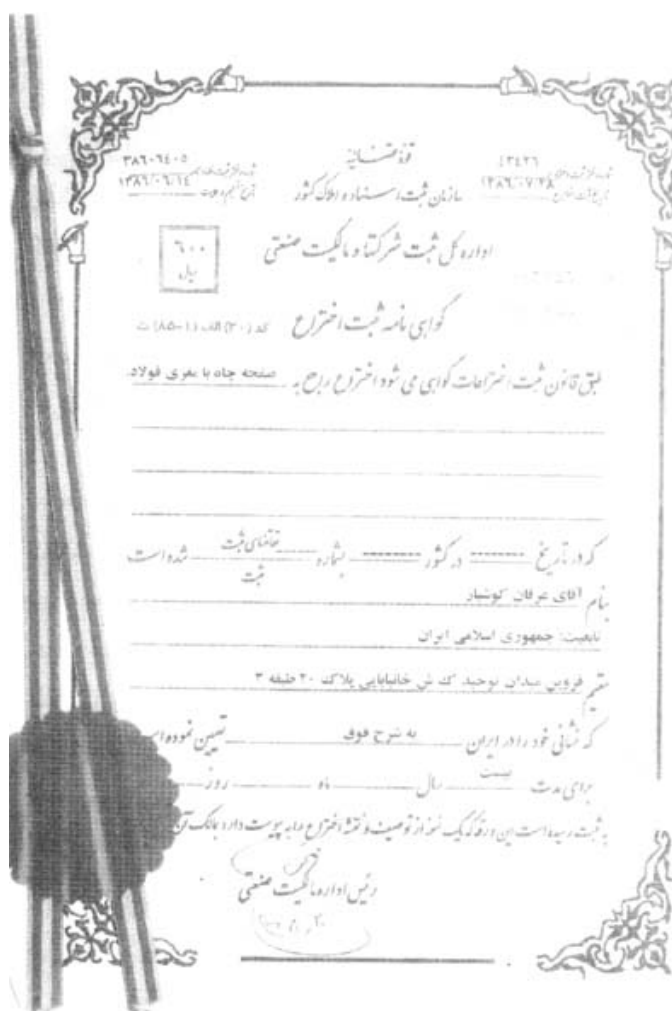 قوهٔ قضائیه
سازمان ثبت اسناد و املاک کشور
شماره و تاریخ ثبت اختراع ۴۳۴۲۶
۱۳۸۶/۰۷/۲۸
۳۸۶۰۶۴۰۵
۱۳۸۶/۰۶/۱۴
اداره کل ثبت شرکتها و مالکیت صنعتی
۶۰۰
ریال
گواهی نامه ثبت اختراع
کد (۳۰) الف (۱-۸۵) ث
طبق قانون ثبت اختراعات گواهی می شود اختراع راجع به صفحه چاه با مغزی فولاد.
که در تاریخ -------- در کشور -------- بشماره تقاضای ثبت شده است
ثبت
بنام آقای عرفان کوشیار
تابعیت: جمهوری اسلامی ایران
مقیم قزوین میدان توحید ک ش خانبابایی پلاک ۲۰ طبقه ۳
که نشانی خود را در ایران به شرح فوق تعیین نموده ا
برای مدت بیست سال ماه روز
به ثبت رسیده است این ورقه که یک نسخه از توصیف و نقشه اختراع را به پیوست دارد بمالک آن
رئیس اداره مالکیت صنعتی